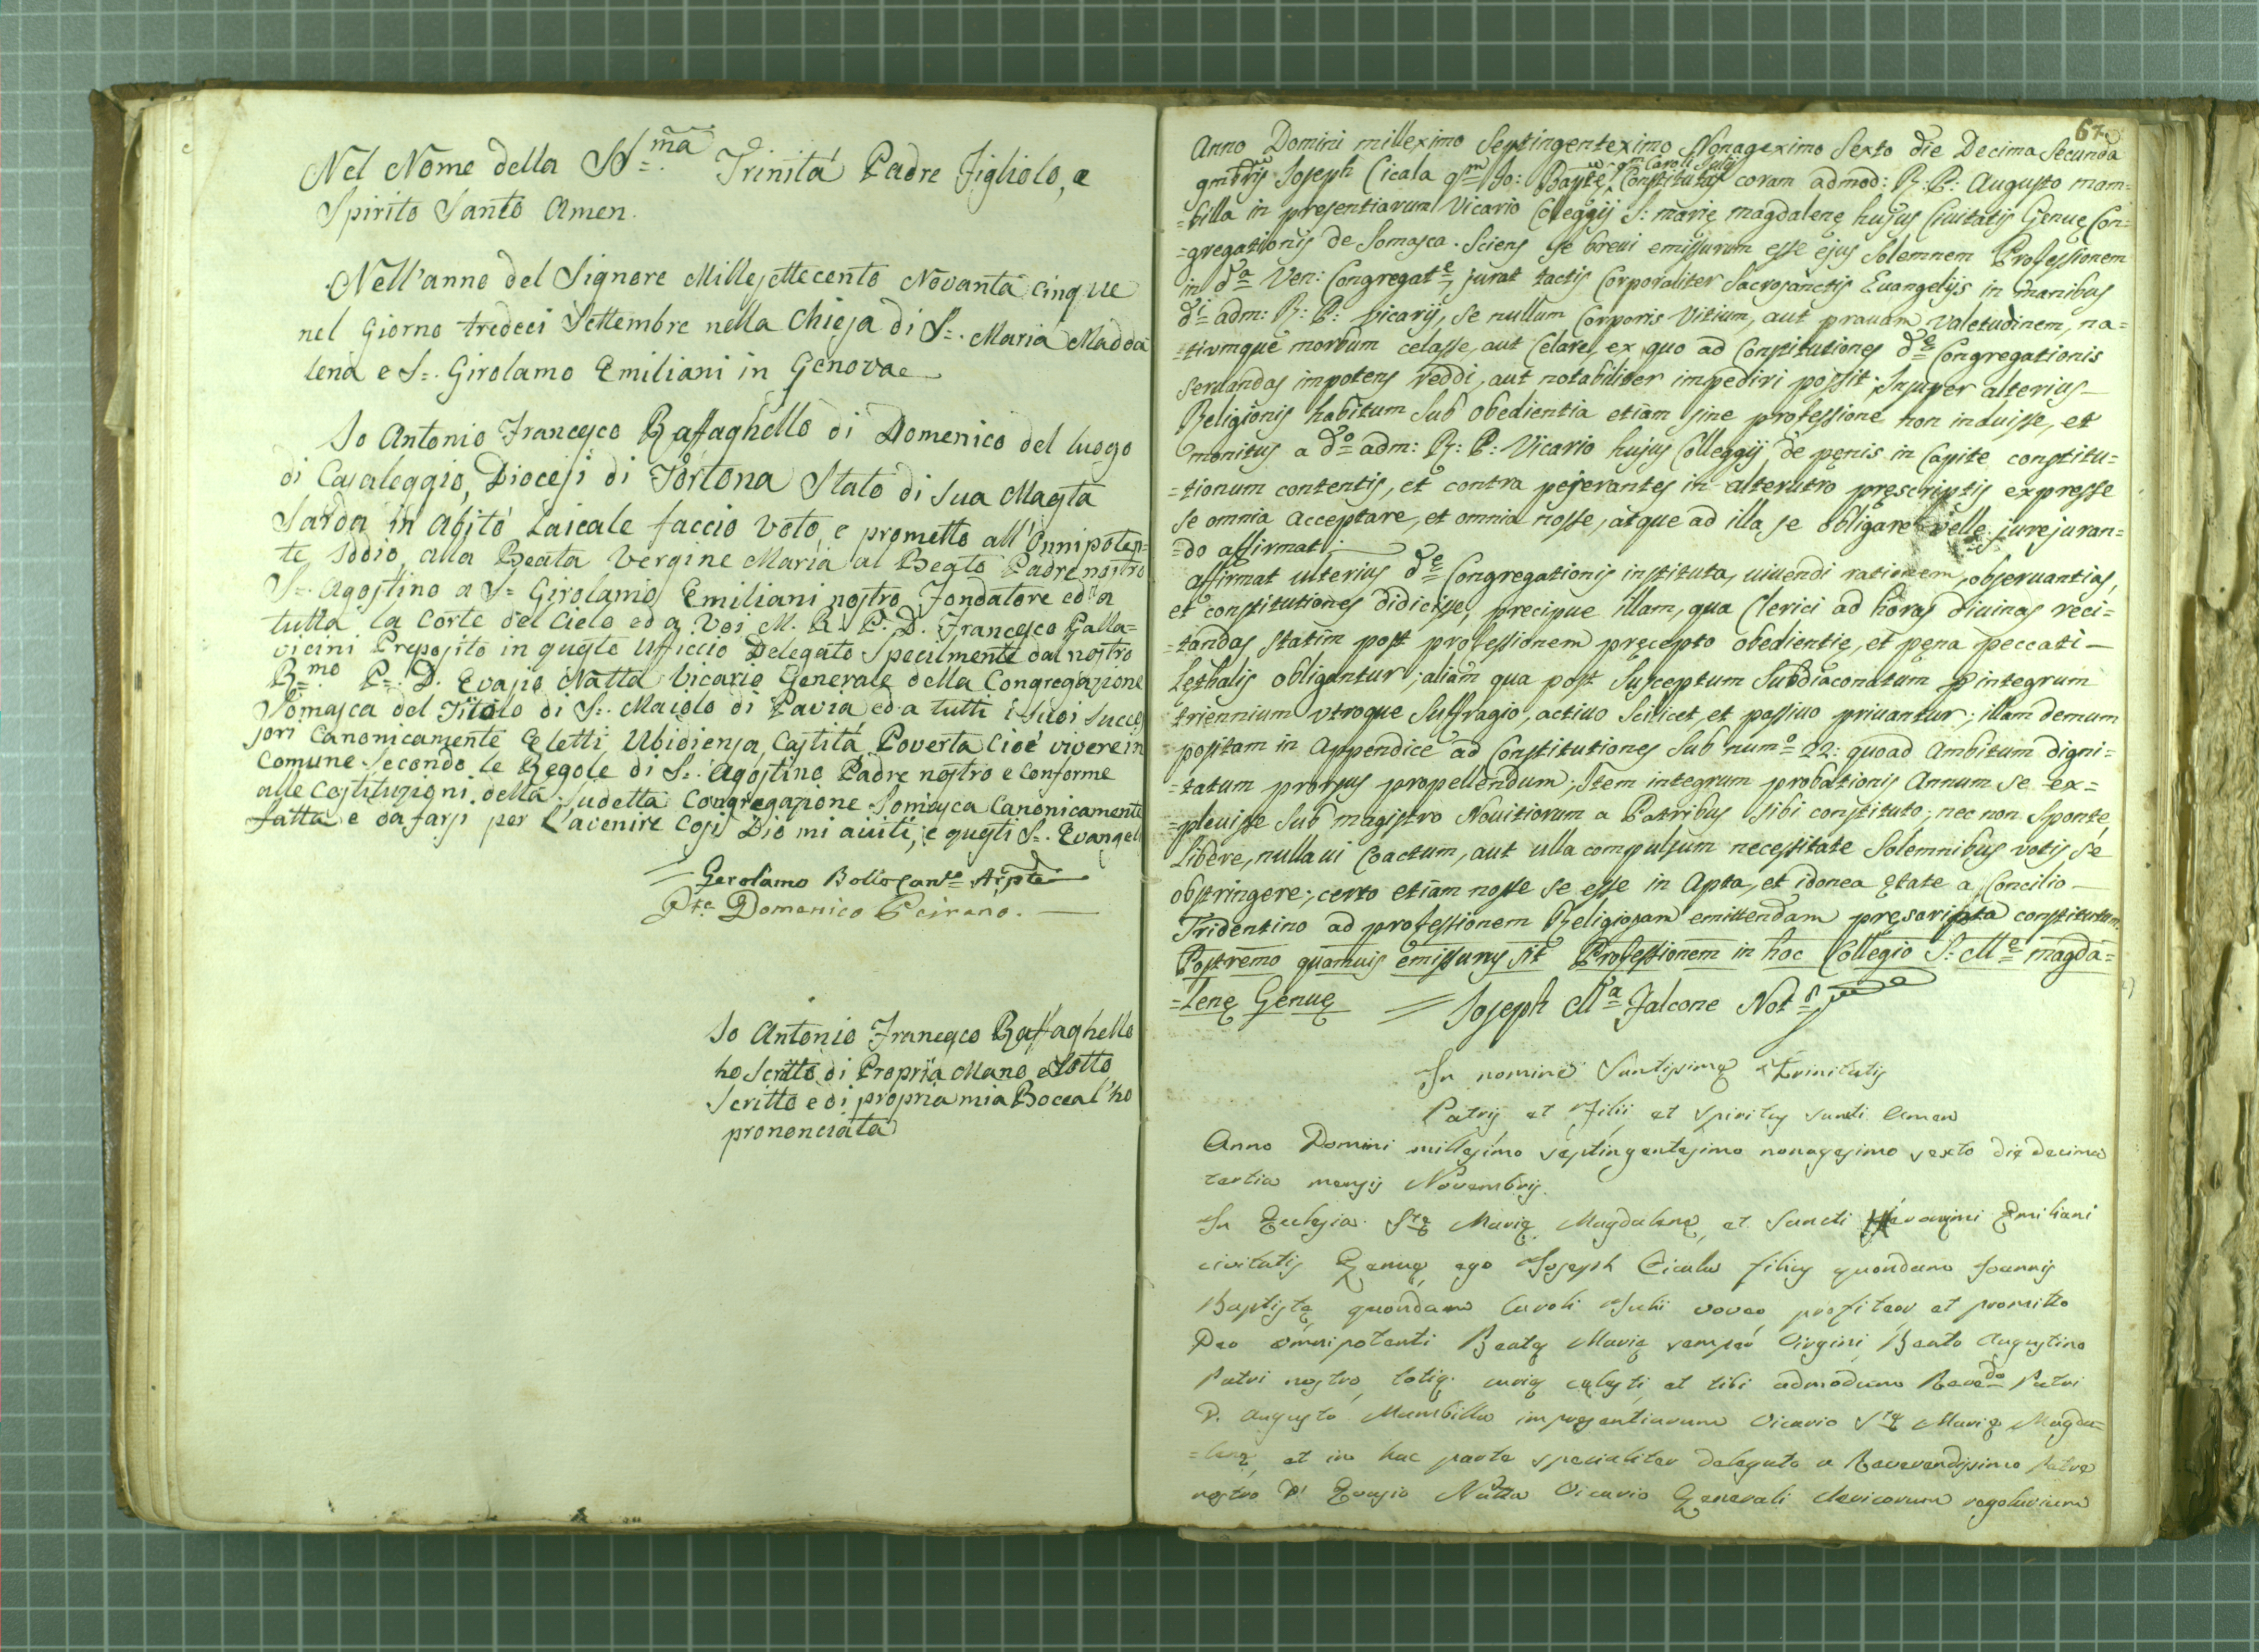 Nel Nome della SS.ma Trinità Padre Figliolo, e
Spirito Santo Amen.
Nell'anno del Signore Millesettecento Novanta Cinque
nel Giorno tredeci Settembre nella Chiesa di S. Maria Madda
lena e S. Girolamo Emiliani in Genova
Io Antonio Francesco Raffaghello di Domenico del luogo
di Casaleggio, Diocesi di Tortona Stato di Sua Maestà
Sarda in Abito Laicale faccio Voto, e prometto all'Onnipoten=
te Iddio, alla Beata Vergine Maria al Beato Padre nostro
S. Agostino a S. Girolamo Emiliani nostro Fondatore ed a
tutta la Corte del Cielo ed a Voi M. R. P. D. Francesco Palla=
vicini Preposito in questo Ufficio Delegato Specilmente dal nostro
R.mo P. D. Evasio Natta Vicario Generale della Congregazione
Somasca del Titolo di S. Maiolo di Pavia ed a tutti i suoi Succes
sori Canonicamente Eletti Ubidienza, Castità Povertà Cioè vivere in
Comune Secondo le Regole di S. Agostino Padre nostro e Conforme
alle Costituzioni della Sudetta Congregazione Somasca Canonicamente
fatta e da farsi per L'avenire Così Dio mi aiuti, e questi S. Evangeli
Gerolamo Bollo
Pte Domenico Peirano.
Io Antonio Francesco Raffaghello
ho Scritto di Propria Mano e Sotto
Scritto e di propria mia Bocca l'ho
prononciata
67
Anno Domini millexîmo Septingenteximo Nonagexîmo Sexto die Decima Secunda
9mbris Joseph Cicala qm Jo: Baptę qm Caroli Julij Constitutus coram admod: R: P: Augusto mam=
=billa in presentiarum Vicario Colleggij S: marię magdalenę hujus Civitatis Genuę Con=
=gregationis de Somasca. Sciens se brevi emissurum esse ejus Solemnem Professionem
in da Ven: Congregate, jurat tactis Corporaliter Sacrosanctis Evangelijs in manibus
di adm: R: P: Vicarij, Se nullum Corporis Vitium, aut pravam Valetudinem, na=
=tivmque morbum celasse, aut Celare, ex quo ad Constitutiones dę Congregationis
Servandas impotens reddi, aut notabiliter impediri possit; Insuper alterius
Religionis habitum Sub obedientia etiam sine professione non induisse, et
monitus a do adm: R: P: Vicario hujus Colleggij, de pęnis in Capite constitu=
=tionum contentis, et contra pejerantes in alterutro pręscriptis expresse
Se omnia Acceptare, et omnia nosse, atque ad illa se obligare velle jurejuran=
=do affirmat;
affirmat ulterius dę Congregationis instituta, vivendi rationem, observantias,
et constitutiones didicisse, precipue illam, qua Clerici ad horas divinas reci=
=tandas Statim post professionem pręcepto obedientię, et pęna peccati
Lethalis obligantur; aliam qua post Susceptum Subdiaconatum p integrum
triennium utroque Suffragio, activo Scilicet, et passivo privantur; illam demum
positam in Appendice ad Constitutiones Sub numo 22: quoad Ambitum digni=
=tatum prorsus propellendum; Item integrum probationis Annum Se ex=
=plevisse Sub magistro Novitiorum a Patribus Sibi constituto; nec non Sponte,
Libere, nulla vi Coactum, aut ulla compulsum necessitate Solemnibus votis Se
obstringere; certo etiam nosse Se esse in Apta, et idonea ętate a Concilio
Tridentino ad professionem Religiosam emittendam pręscripta constitutum.
Postremo quamvis emissurus sit Professionem in hoc Collegio S: Mę magda=
=lenę Genuę Joseph Ma Falcone Nots
In nomine Santissimę Trinitatis
Patris et Filii et Spiritus Sancti Amen
Anno Domini millesimo septingentesimo nonagesimo sexto die decima
tertia mensis Novembris.
In Ecclesia Stę Marię Magdalenę, et Sancti Emiliani
civitatis Genuę ego Joseph Cicala filius quondam Joannis
Baptistę quondam Caroli Julii voveo, profiteor et promitto
Deo omnipotenti Beatę Marię semper Virgini, Beato Augustino
Patri nostro, totiq. curię cęlesti, et tibi admodum Revedo Patri
D. Augusto Mambilla impresentiarum Vicario Stę Marię Magda=
=lenę, et in hac parte specialiter delegato a Reverendissimo Patre
nostro D. Evasio Natta Vicario Generali clericorum regolarium